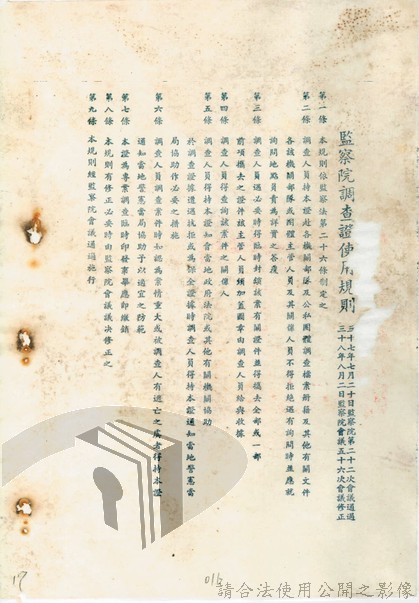 監察院調查證使用規則
三十七年七月二十日監察院第二十二次會議通過
三十八年八月二日監察院會議五十六次會議修正
第一條 本規則依監察法第二十六條制定之
第二條 調查人員持本證赴各機關部隊及公私團體調查檔案冊籍及其他有關文件
各該機關部隊或團體主管人員及其關係人員不得拒絕遇有詢問時並應就
詢問地點員責為詳實之答覆
第三條 調查人員遇必要時得臨時封鎖該案有關證件並得攜去全部或一部
前項攜去之證件該主管人員須加蓋圖章由調查人員給與收據
第四條 調查人員得查詢該案件之關係人
第五條 調查人員得持本證知會當地政府法院或其他有關機關協助
於調查證據遭遇抗拒或為保全證據時調查人員得持本證通知當地警憲當
局協助作必要之措施
第六條 調查人員調查案件時如認為案情重大或被調查人有逃亡之虞者得持本證
通知當地警憲當局協助予以適宜之防範
第七條 本證為專案調查臨時印發事畢應即繳銷
第八條 本規則有修正必要時由監察院會議議決修正之
第九條 本規則經監察院會議通過施行
17
016
請合法使用公開之影像